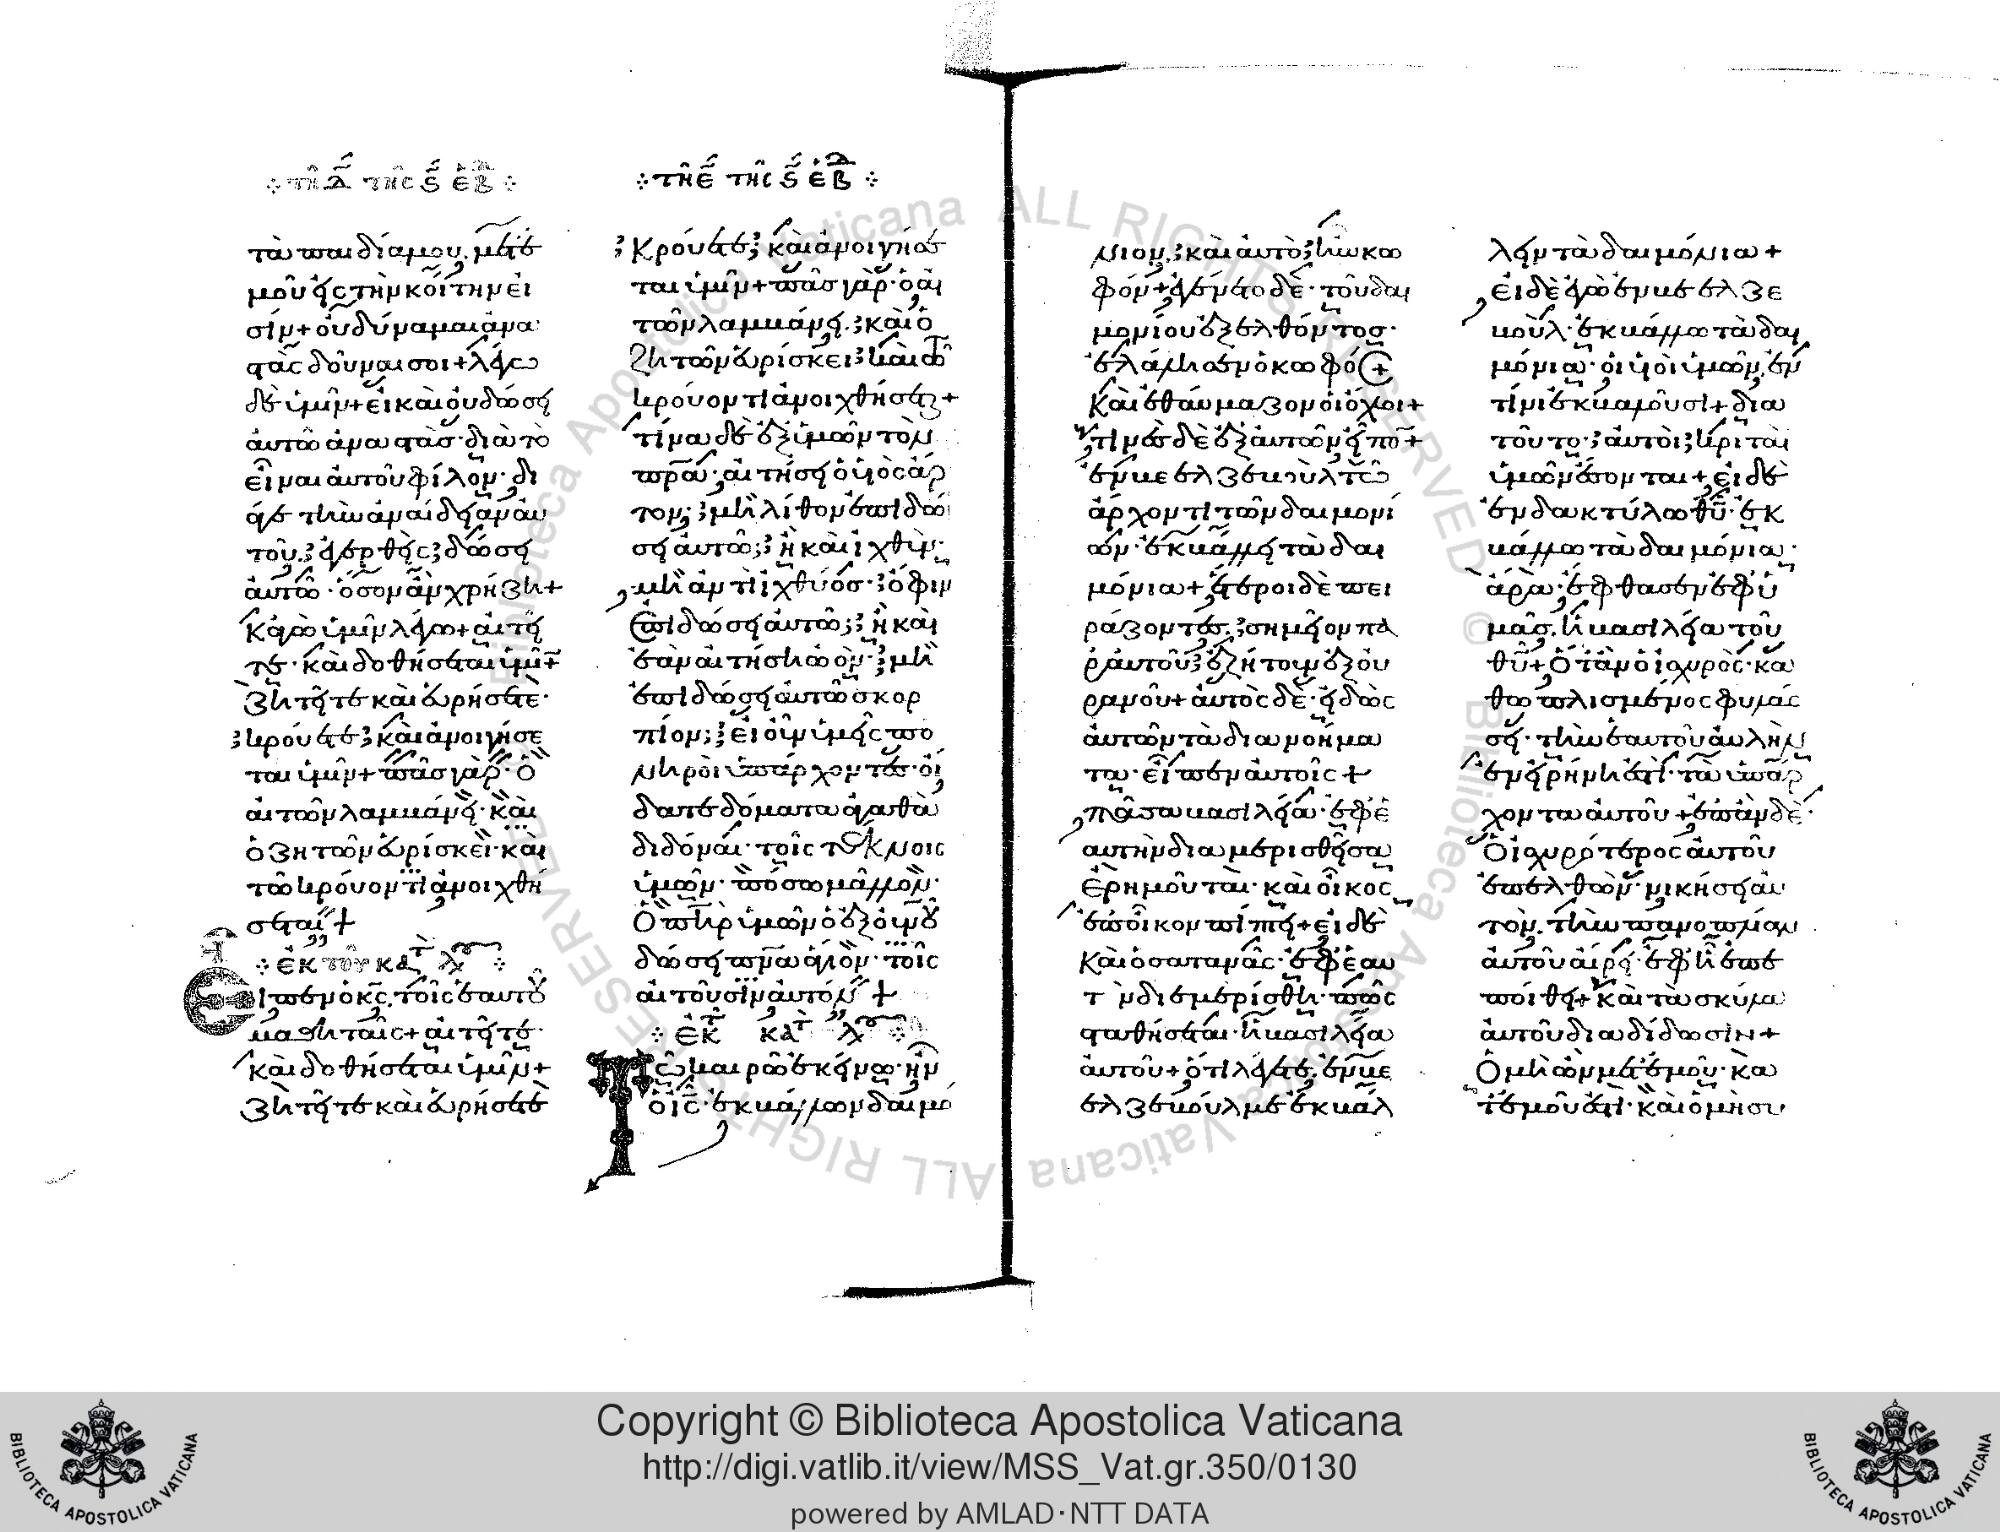 τῆ δ τῆς ς ἑβ
τὰ παιδία μου μετ ἐ
μοῦ εἰς τὴν κοίτην εἰ
σίν + οὐ δύναμαι ἀνα
στὰς δοῦναι σοι + λέγω
δὲ ὑμῖν + εἰ καὶ οὐ δώσει
αὐτῶ ἀναστὰς · διὰ τὸ
εἶναι αὐτοῦ φίλον · δι
ά γε τὴν ἀναίδειαν αὐ
τοῦ ἐγερθεὶς δώσει
αὐτῶ · ὅσον ἂν χρήζη +
Καγὼ ὑμῖν λέγω + αἰτεῖ
τε · καὶ δοθήσεται ὑμῖν +
ζητεῖτε καὶ εὑρήσετε ·
κρούετε καὶ ἀνοιγήσε
ται ὑμῖν + πᾶς γὰρ · ὁ
αἰτῶν λαμβάνει · καὶ
ὁ ζητῶν εὑρίσκει · καὶ
τῶ κρούοντι ἀνοιχθή
σεται +
ἐκ τοῦ κατ λχ
Εἶπεν ὁ κς τοῖς ἑαυτοῦ
μαθηταῖς + αἰτεῖτε ·
καὶ δοθήσεται ὑμῖν +
ζητεῖτε καὶ εὑρήσετε
τῆ ε τῆς ς ἑβ
Κρούετε καὶ ἀνοιγήσε
ται ὑμῖν + πᾶς γὰρ · ὁ αἰ
τῶν λαμβάνει καὶ ὁ
ζητῶν εὑρίσκει καὶ τῶ
κρούοντι ἀνοιχθήσεται +
τίνα δὲ ἐξ ὑμῶν τὸν
πρα · αἰτήσει ὁ υἱὸς ἄρ
τον ; μὴ λίθον ἐπιδώ
σει αὐτῶ ; ἢ καὶ ἰχθὺν ·
μὴ ἀντὶ ἰχθύος · ὄφιν
ἐπιδώσει αὐτῶ ; ἢ καὶ
ἐὰν αἰτήση ὠὸν · μὴ
ἐπιδώσει αὐτῶ σκορ
πίον ; εἰ οὖν ὑμεῖς πο
νηροὶ ὑπάρχοντες · οἴ
δατε δόματα ἀγαθὰ
διδόναι · τοῖς τέκνοις
ὑμῶν · πόσω μᾶλλον ·
Ὁ πηρ ὑμῶν ὁ ἐξ οὐνοῦ
δώσει πνα ἅγιον · τοῖς
αἰτοῦσιν αὐτόν +
ἐκ κατ λχ
Τῶ καιρῶ ἐκείνω · ἦν
ὁ ις · ἐκβάλλων δαιμό
νιον καὶ αὐτὸ ἦν κω
φόν + ἐγένετο δὲ · τοῦ δαι
μονίου ἐξελθόντος ·
ἐλάλησεν ὁ κωφός +
Καὶ ἐθαύμαζον οἱ ὄχλοι +
τινὲς δὲ ἐξ αὐτῶν εἶπον +
ἐν βεελζεβοὺλ τῶ
ἄρχοντι τῶν δαιμονί
ων · ἐκβάλλει τὰ δαι
μόνια + ἕτεροι δὲ πει
ράζοντες σημεῖον πα
ρ αὐτοῦ ἐζήτουν ἐξ οὐ
ρανοῦ + αὐτὸς δὲ · εἰδὼς
αὐτῶν τὰ διανοήμα
τα · εἶπεν αὐτοῖς +
πᾶσα βασιλεία · ἐφ ἑ
αυτὴν διαμερισθεῖσα
ἐρημοῦται · καὶ οἶκος
ἐπ οἶκον πίπτει + εἰ δὲ
Καὶ ὁ σατανᾶς · ἐφ ἑαυ
τὸν διεμερίσθη · πῶς
σταθήσεται · ἡ βασιλεία
αὐτοῦ + ὅτι λέγετε ἐν βε
ελζεβούλ με ἐκβάλ
λειν τὰ δαιμόνια +
εἰ δὲ ἐγὼ ἐν βεελζε
βοὺλ · ἐκβάλλω τὰ δαι
μόνια · οἱ υἱοὶ ὑμῶν ἐν
τίνι ἐκβαλοῦσι + δια
τοῦτο · αὐτοὶ κριταὶ
ὑμῶν ἔσονται + εἰ δὲ
ἐν δακτύλω θυ · ἐκ
βάλλω τὰ δαιμόνια ·
ἄρα · ἔφθασεν ἐφ ὑ
μᾶς ἡ βασιλεία τοῦ
θυ + Ὅταν ὁ ἰσχυρὸς · κα
θωπλισμένος φυλάσ
ση · τὴν ἑαυτοῦ αὐλὴν
ἐν εἰρήνη ἐστὶ · τὰ ὑπάρ
χοντα αὐτοῦ + ἐπὰν δὲ ·
Ὁ ἰσχυρότερος αὐτοῦ
ἐπελθὼν · νικήση αὐ
τὸν τὴν πανοπλίαν
αὐτοῦ αἴρει · ἐφ ἧ ἐπε
ποίθει + καὶ τὰ σκύλα
αὐτοῦ διαδίδωσιν +
Ὁ μὴ ὢν μετ ἐμοῦ · κα
τ ἐμοῦ ἐστὶ · καὶ ὁ μὴ συ
Copyright © Biblioteca Apostolica Vaticana
http://digi.vatlib.it/view/MSS_Vat.gr.350/0130
powered by AMLAD·NTT DATA
BIBLIOTECA APOSTOLICA VATICANA
BIBLIOTECA APOSTOLICA VATICANA